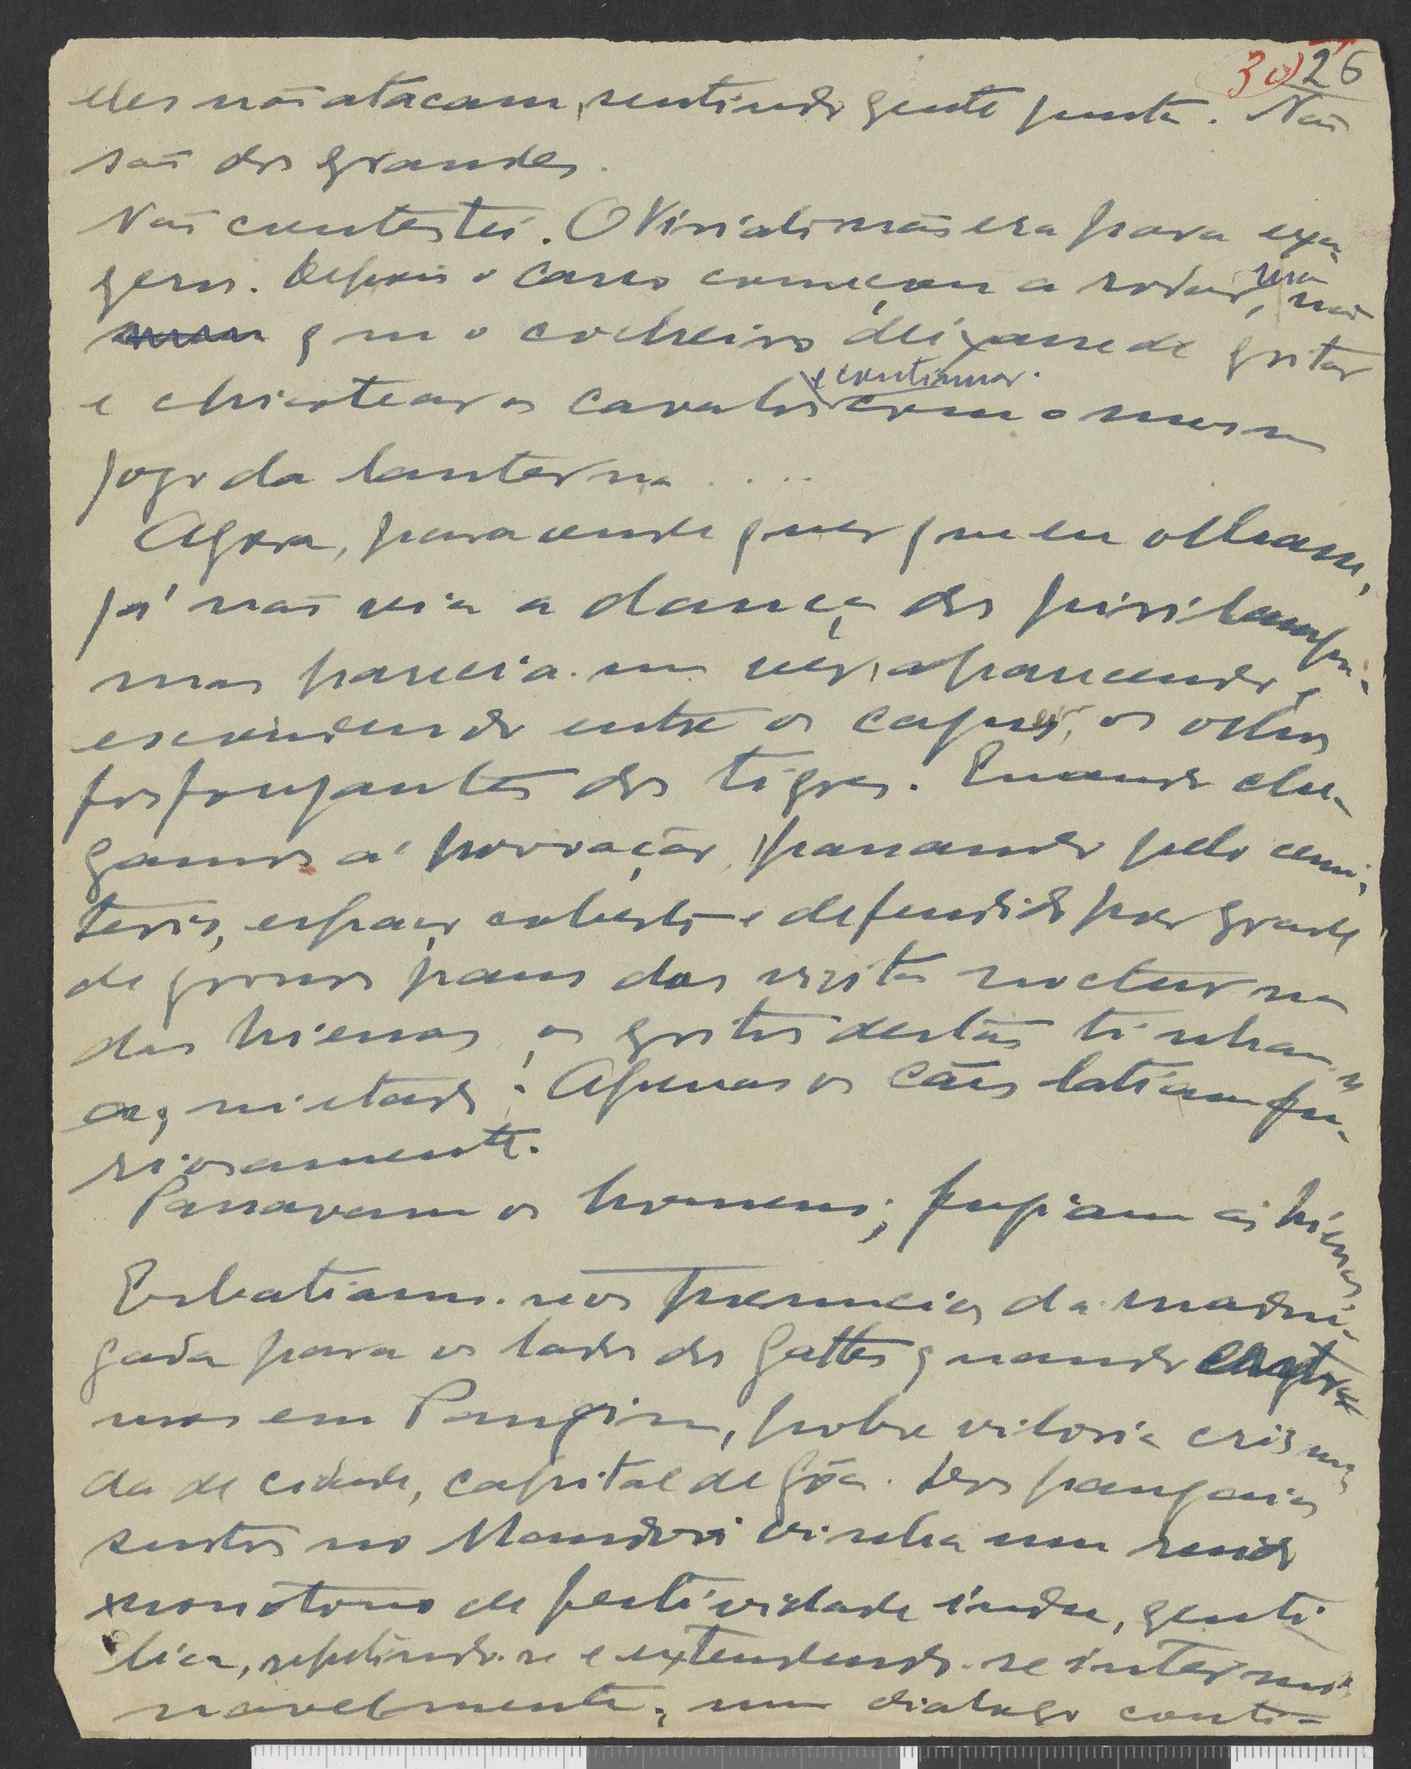 30) 26
eles não atacam, sentindo gente junta. Não
são dos grandes.
Não contestei. O Viriato não era para exa-
geros. Depois o carro começou a rodar, sem
que o cocheiro deixasse de gritar
e chicotear os cavalos e continuar com o mesmo
jogo da lanterna....
Agora, para onde quer que eu olhasse,
já não via a dança dos pirilampos
mas parecia-me ver, aparecendo e
escondendo entre os capins, os olhos
fosforejantes dos tigres. Quando che-
gamos à povoação, passando pelo cemi-
terio, espaço coberto e defendido por grade
de grossos paus das visitas nocturnas
das hienas, os gritos destas tinham
aquietado. Apenas os cães latiam fu-
riosamente.
Passavam os homens; fugiam as hienas
Esbatiam-se os prenuncios da madru-
gada para os lados dos Gattes quando entra
mos em Pangim, pobre vilória crisma
da de cidade, capital de Gôa. Dos pangaios
surtos no Mandovi vinha um ruido
monotono de festividade indu, genti
lica, repetindo-se e extendendo-se intermi
navelmente, num dialogo conti-